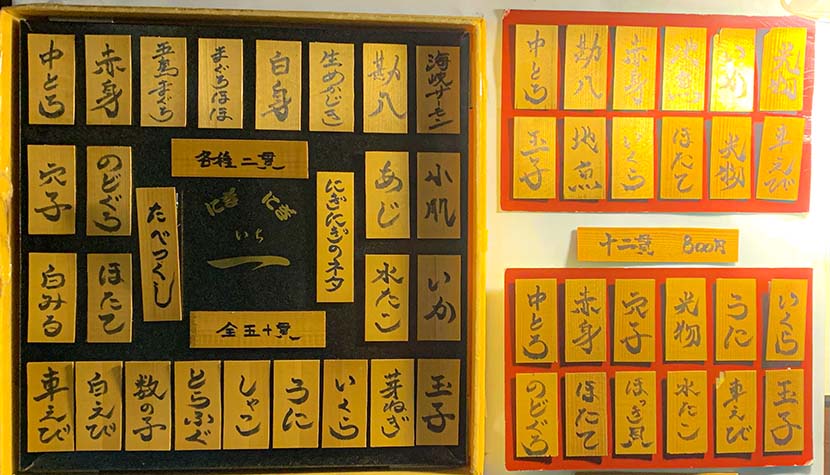 中とろ
赤身
五島まぐろ
まぐろほほ
白身
生めかじき
勘八
海峡サーモン
各種二貫
穴子
のどぐろ
たべつくし
にぎ にぎ
いち
一
にぎにぎのネタ
あじ
小肌
白みる
ほたて
水たこ
いか
全五十貫
車えび
白えび
数の子
とらふぐ
しゃこ
うに
いくら
芽ねぎ
玉子
中とろ
勘八
赤身
いか
光物
玉子
地魚
いくら
ほたて
光物
車えび
十二貫 800円
中とろ
赤身
穴子
光物
うに
いくら
のどぐろ
ほたて
ほっき貝
水たこ
車えび
玉子